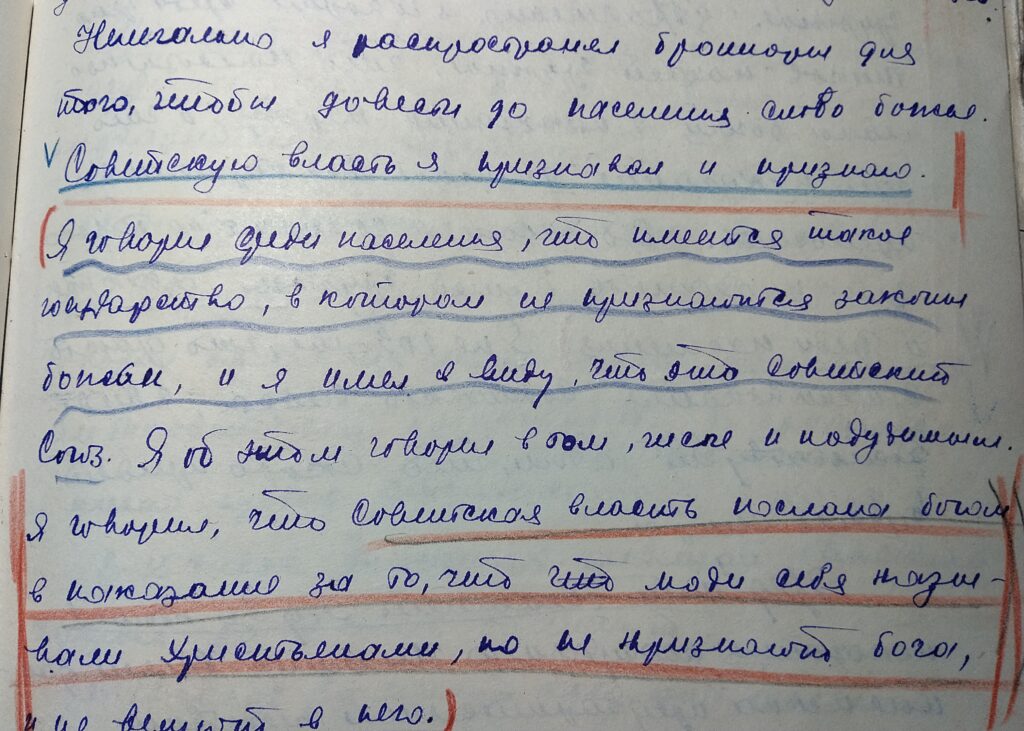 Нелегально я распространял брошюры для
того, чтобы довести до населения слово божье.
Советскую власть я признавал и признаю.
Я говорил среди населения, что имеется такое
государство, в котором не признаются законы
божьи, и я имел в виду, что это Советский
Союз. Я об этом говорил в том, числе и подсудимым.
Я говорил, что Советская власть послана богом
в наказание за то, что что люди себя назы-
вали христьянами, но не признают бога,
и не верят в него.